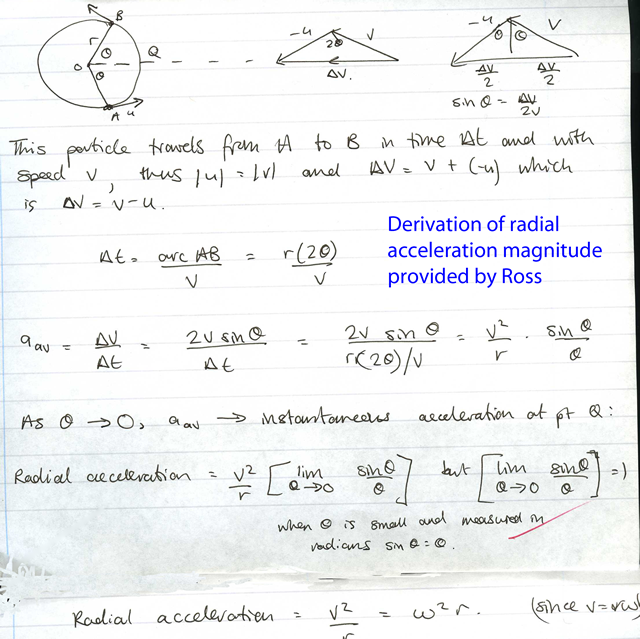 B
r
θ
Q
O
θ
A u
-u
2θ
V
ΔV.
-u
θ
θ
V
ΔV/2
ΔV/2
sin θ = ΔV/2V
This particle travels from A to B in time Δt and with
speed V, thus |u| = |v| and ΔV = V + (-u) which
is ΔV = V - u.
Δt = arc AB/V = r(2θ)/V
Derivation of radial
acceleration magnitude
provided by Ross
a av = ΔV/Δt = 2V sin θ/Δt = 2V sin θ/r(2θ)/V = V²/r . sin θ/θ
As θ → 0, a av → instantaneous acceleration at pt Q:
Radial acceleration = V²/r [lim θ→0 sin θ/θ] but [lim θ→0 sin θ/θ] = 1
when θ is small and measured in
radians sin θ = θ.
Radial acceleration = V²/r = ω²r. (since v=rω)